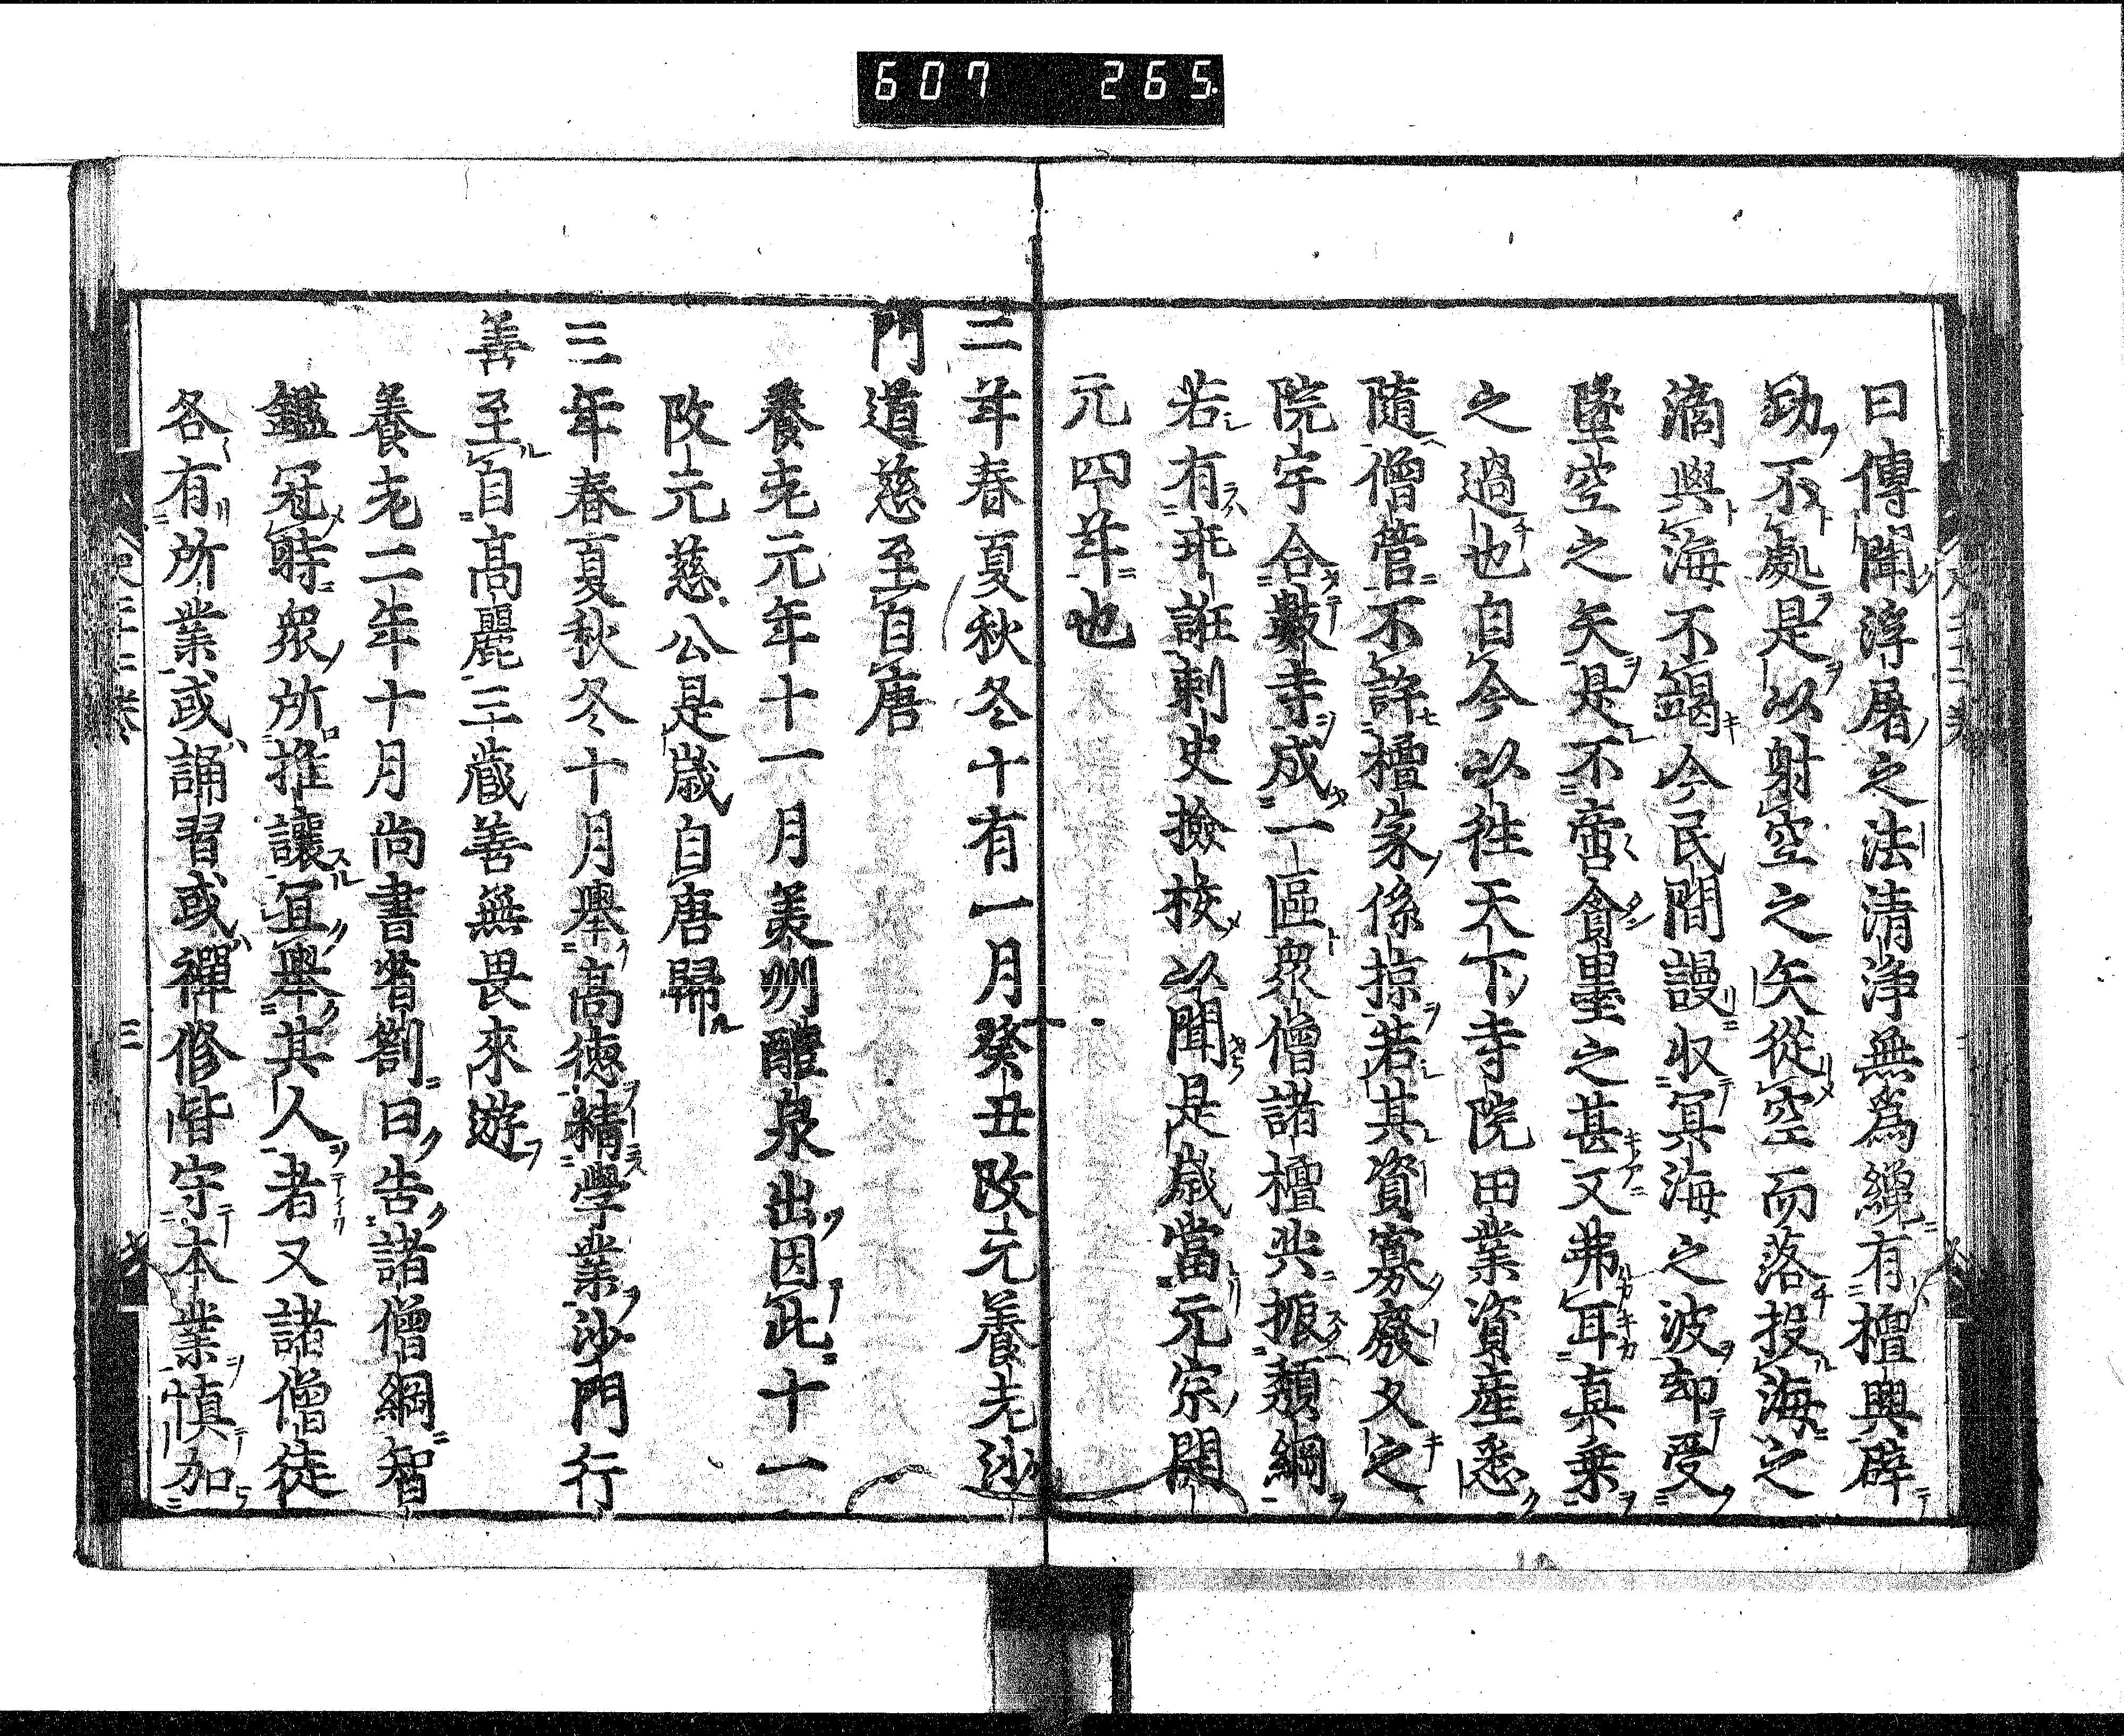 607 265
曰傳聞浮屠之法清淨無爲纔有檀興辟
勛不處是以射空之矢從空而落投海之
滴與海不竭今民間謾収冥海之波却受
墜空之矢是不啻貪墨之甚又弗耳真乗
之過也自今以徃天下寺院田業資産悉
隨僧管不許檀家係掠若其資寡廢久之
院宇合數寺成一區衆僧諸檀共振頽綱
若有乖誑剌史撿挍以聞是歳當元宗開
元四年也
二年春夏秋冬十有一月癸丑改元養老沙
門道慈至自唐
養老元年十一月美州醴泉出因此十一
改元慈公是歳自唐歸
三年春夏秋冬十月擧高徳精學業沙門行
善至自髙麗三藏善無畏來遊
養老二年十月尚書省劄曰告諸僧綱智
鑑冠時衆所推讓冝舉其人者又諸僧徒
各有所業或誦習或禪修皆守本業慎加
三